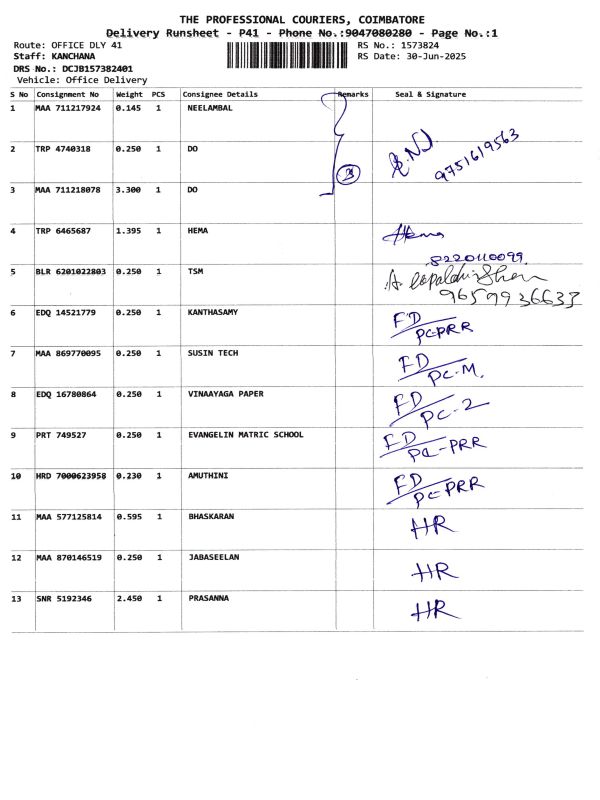 THE PROFESSIONAL COURIERS, COIMBATORE
Delivery Runsheet - P41 - Phone No.:9047080280 - Page No.:1
Route: OFFICE DLY 41
RS No.: 1573824
Staff: KANCHANA
RS Date: 30-Jun-2025
DRS No.: DCJB157382401
Vehicle: Office Delivery
S No Consignment No Weight PCS Consignee Details Remarks Seal & Signature
1 MAA 711217924 0.145 1 NEELAMBAL
2 TRP 4740318 0.250 1 DO
9751619563
3 MAA 711218078 3.300 1 DO
3
4 TRP 6465687 1.395 1 HEMA Hema
8220110099
5 BLR 6201022803 0.250 1 TSM
9659936633
6 EDQ 14521779 0.250 1 KANTHASAMY FD
PCPRR
7 MAA 869770095 0.250 1 SUSIN TECH FD
PC-M.
8 EDQ 16780864 0.250 1 VINAAYAGA PAPER FD
PC-2
9 PRT 749527 0.250 1 EVANGELIN MATRIC SCHOOL FD
PC-PRR
10 HRD 7000623958 0.230 1 AMUTHINI FD
PC-PRR
11 MAA 577125814 0.595 1 BHASKARAN HR
12 MAA 870146519 0.250 1 JABASEELAN HR
13 SNR 5192346 2.450 1 PRASANNA HR